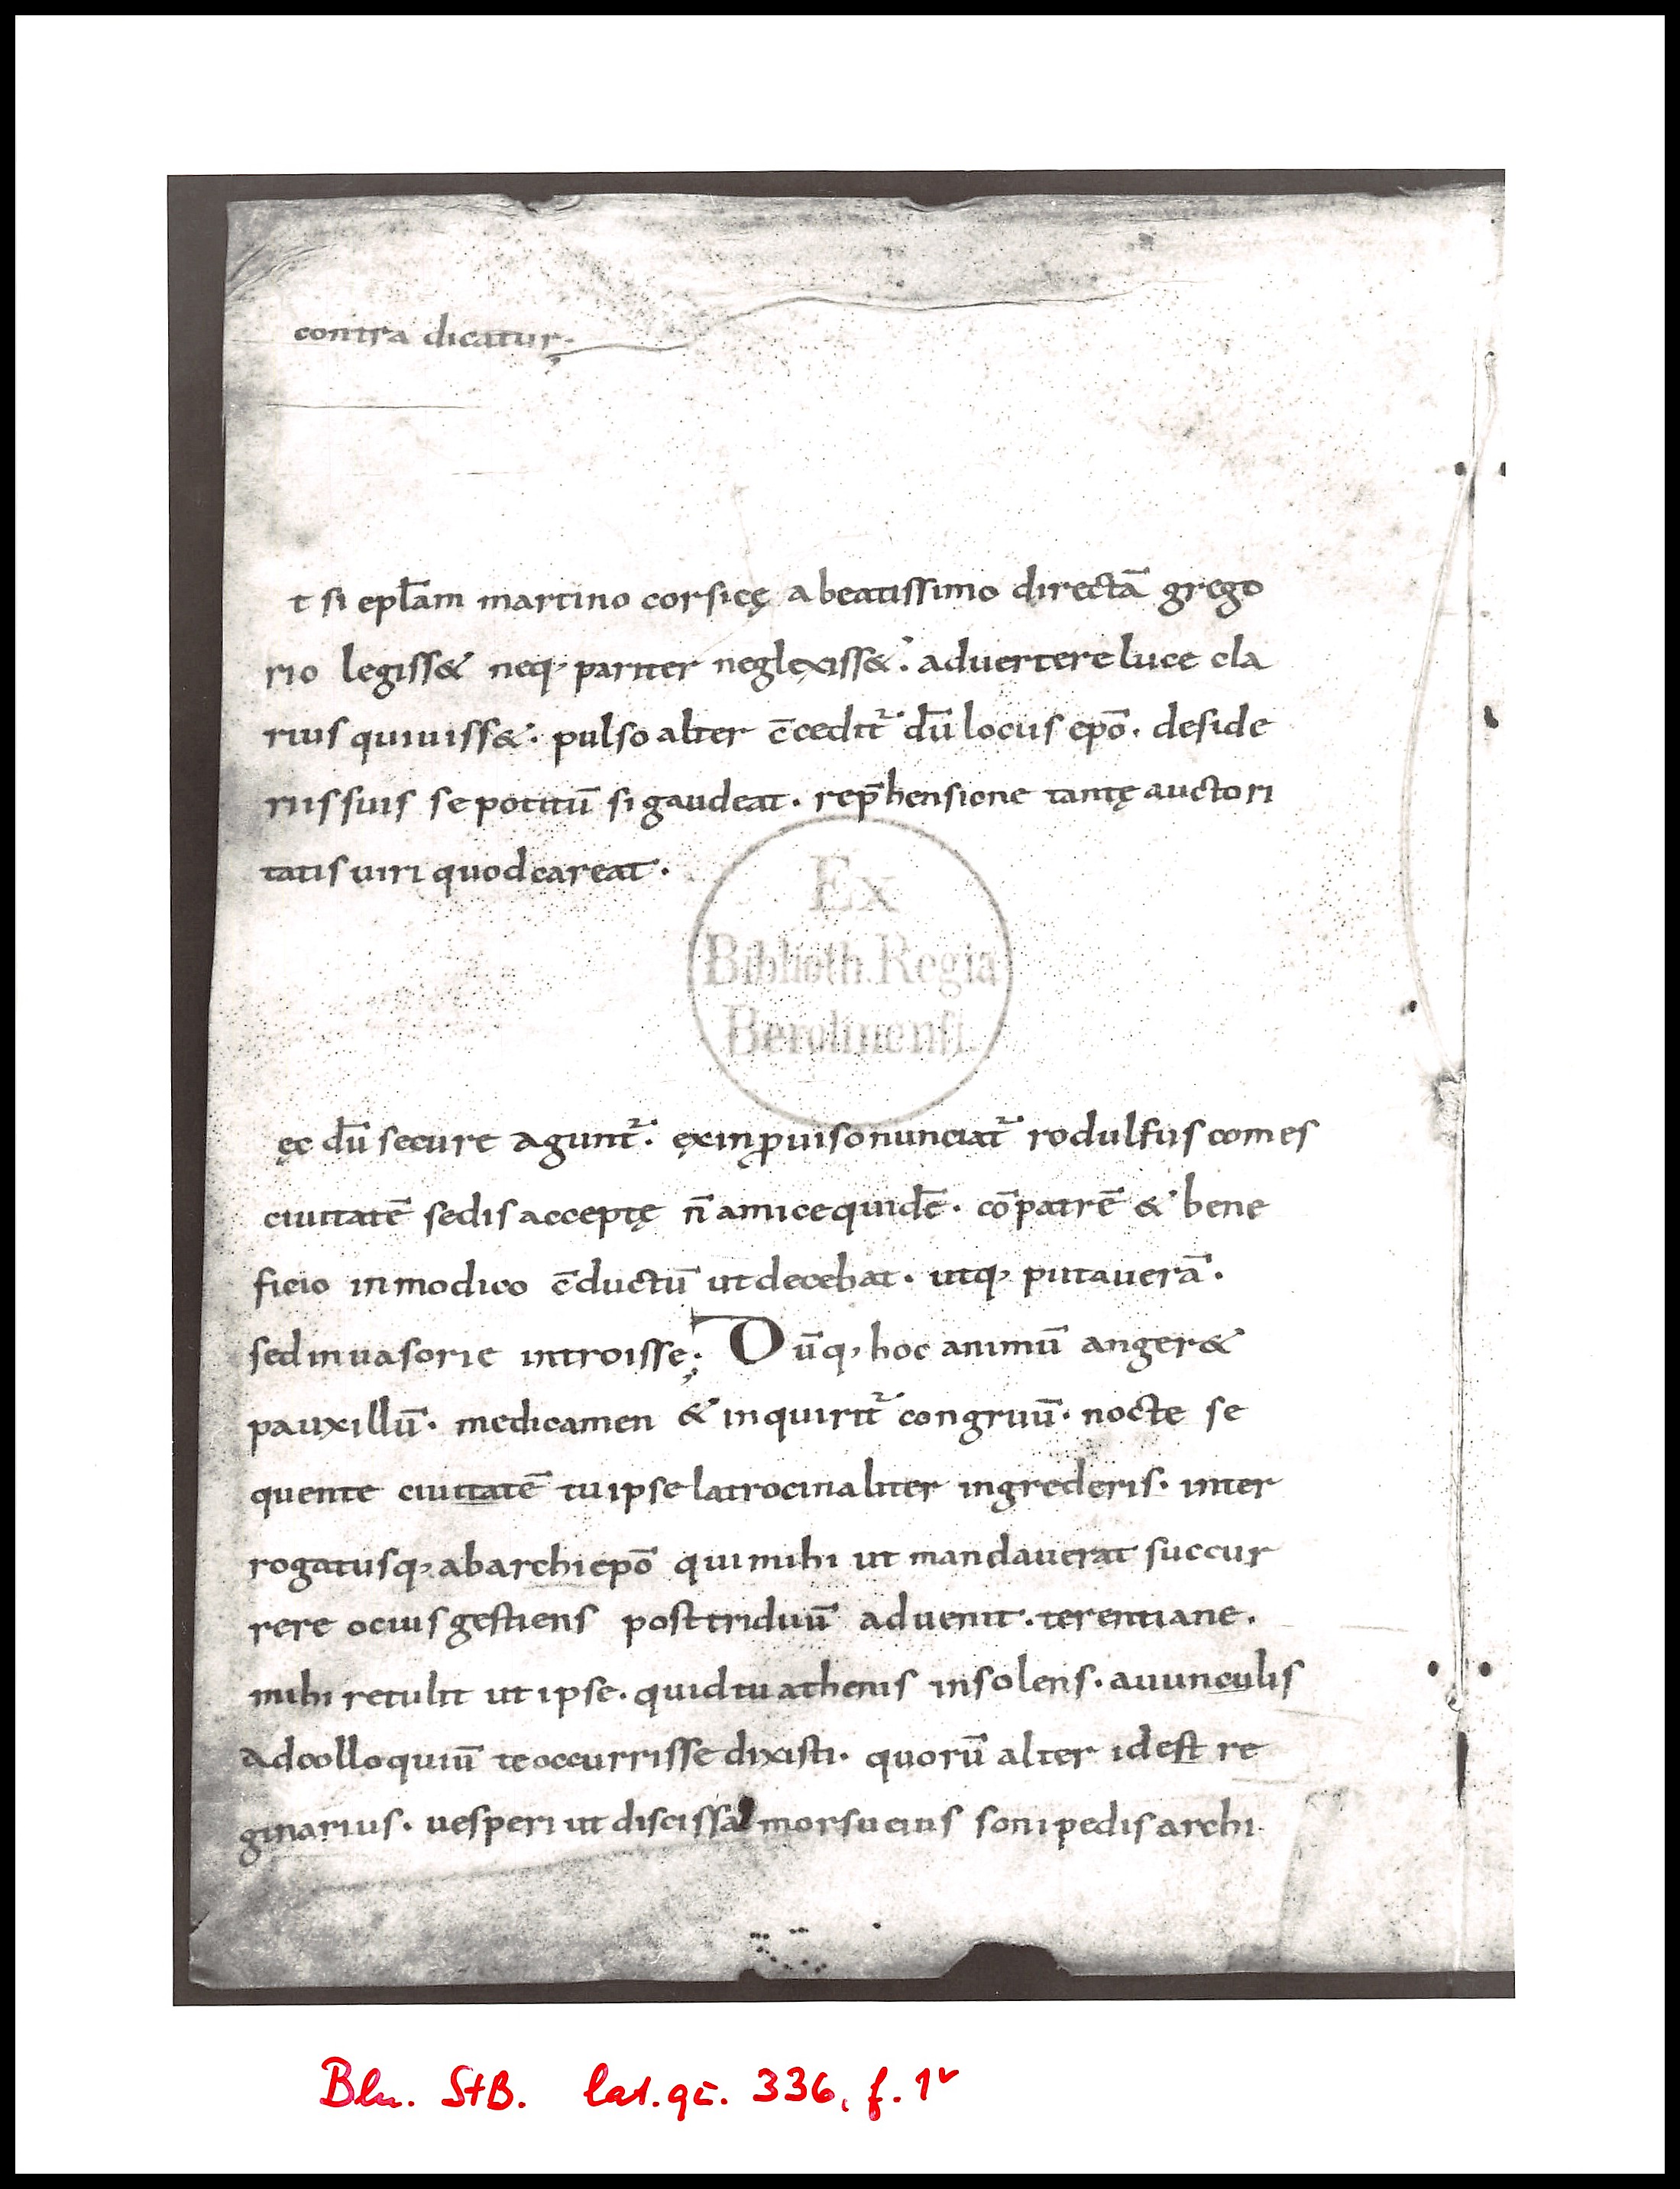 contra dicatur.
t si ep̄lam martino corsicę a beatissimo directā grego
rio legiss& neq; pariter neglexiss&. aduertere luce cla
rius quiuiss&. pulso alter c̄cedit᷑ dū locus ep̄o. deside
riis suis se potitū si gaudeat. rep̄hensione tantę auctori
tatis uiri quod careat.
Ex
Biblioth. Regia
Berolinensi.
ęc dū secure agunt᷑. ex inꝓuiso nunciat᷑ rodulfus comes
ciuitatē sedis acceptę n̄ amice quidē. cōpatrē & bene
ficio inmodico c̄ductū ut decebat. utq; putauerā.
sed inuasorie introisse; Dūq; hoc animū anger&
pauxillū. medicamen & inquirit᷑ congruū. nocte se
quente ciuitatē tu ipse latrocinaliter ingrederis. inter
rogatusq; ab archiep̄o qui mihi ut mandauerat succur
rere ocius gestiens post triduū aduenit. terentiane.
mihi retulit ut ipse. quid tu athenis insolens. auunculis
ad colloquiū te occurrisse dixisti. quorū alter id est re
ginarius. uesperi ut discissa morsu eius sonipedis archi
Bln. StB. lat. qu. 336, f. 1v